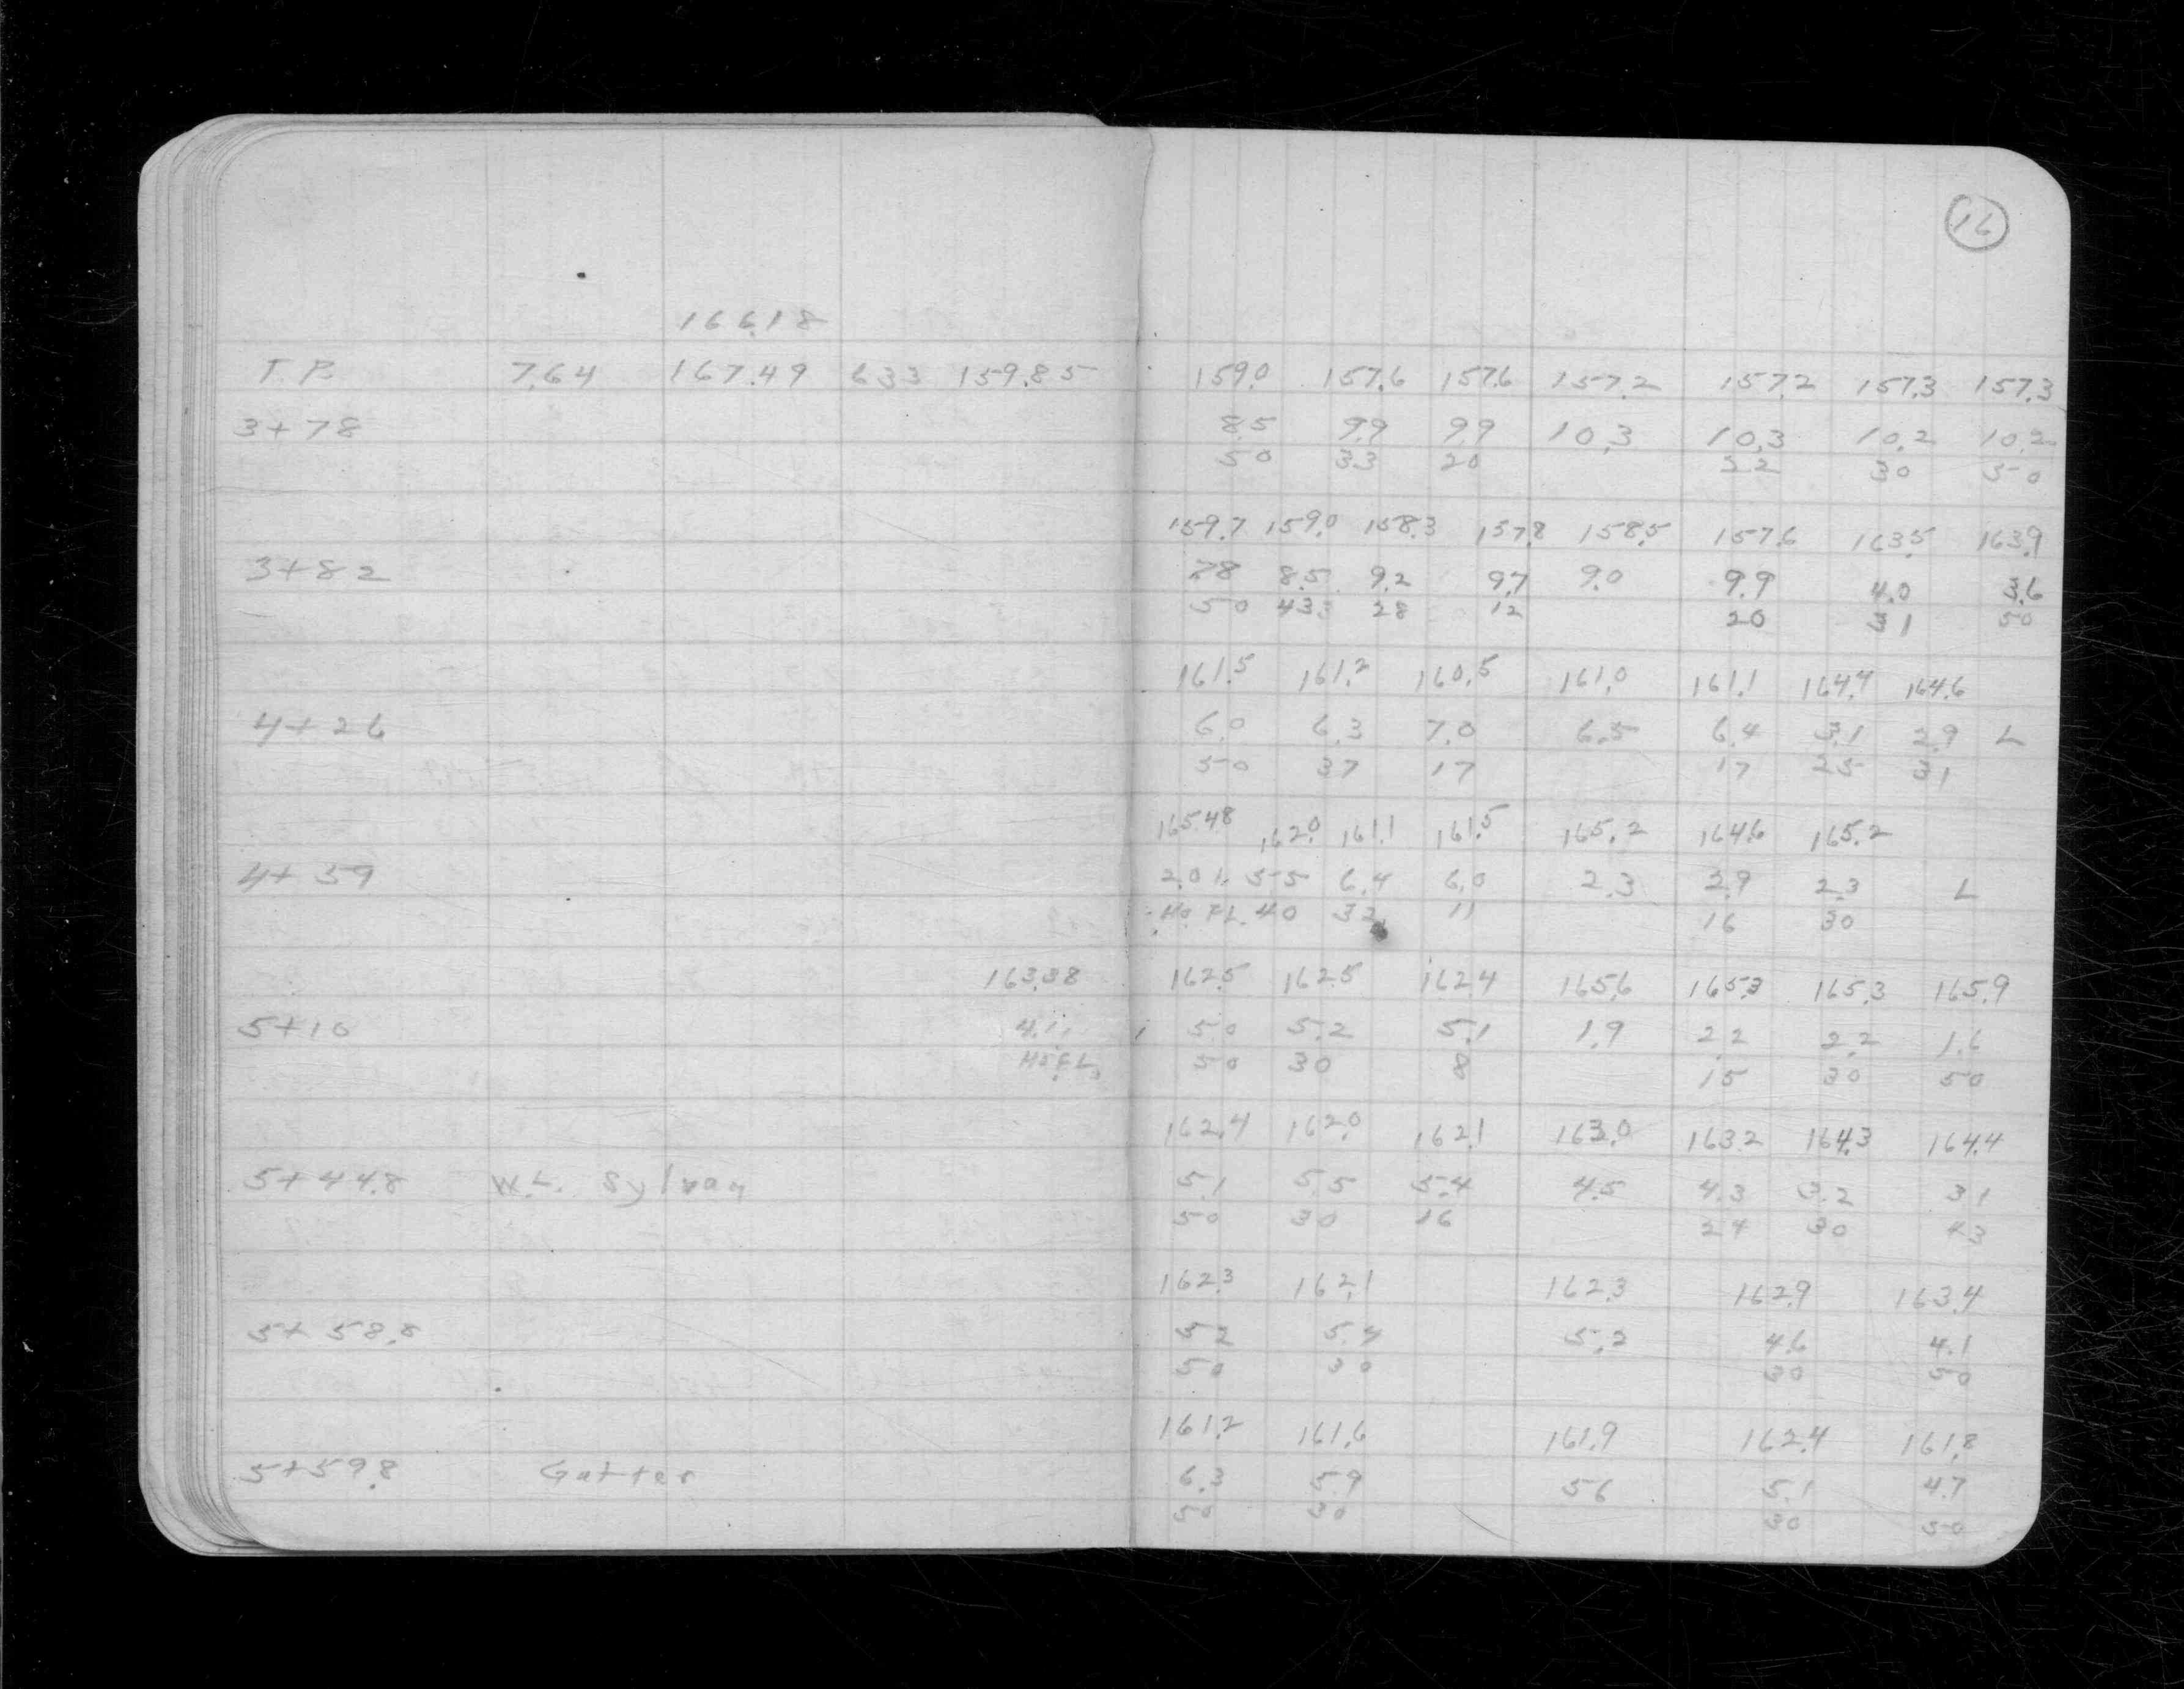 16
166.18
T.P. 7.64 167.49 6.33 159.85 159.0 157.6 157.6 157.2 157.2 157.3 157.3
3+78 8.5 9.9 9.9 10.3 10.3 10.2 10.2
50 33 20 22 30 50
159.7 159.0 158.3 157.8 158.5 157.6 163.5 163.9
3+82 7.8 8.5 9.2 9.7 9.0 9.9 4.0 3.6
50 43 28 12 20 31 50
161.5 161.2 160.5 161.0 161.1 164.4 164.6
4+26 6.0 6.3 7.0 6.5 6.4 3.1 2.9 L
50 37 17 17 25 31
165.48 162.0 161.1 161.5 165.2 164.6 165.2
4+59 2.01 5.5 6.4 6.0 2.3 2.9 2.3 L
Ho. FL. 40 32 11 16 30
163.38 162.5 162.5 162.4 165.6 165.3 165.3 165.9
5+10 4.11 5.0 5.2 5.1 1.9 2.2 2.2 1.6
Ho. FL. 50 30 8 15 30 50
162.4 162.0 162.1 163.0 163.2 164.3 164.4
5+44.8 W.L. Sylvan 5.1 5.5 5.4 4.5 4.3 3.2 3.1
50 30 16 24 30 43
162.3 162.1 162.3 162.9 163.4
5+58.8 5.2 5.4 5.2 4.6 4.1
50 30 30 50
161.2 161.6 161.9 162.4 161.8
5+59.8 Gutter 6.3 5.9 5.6 5.1 4.7
50 30 30 50